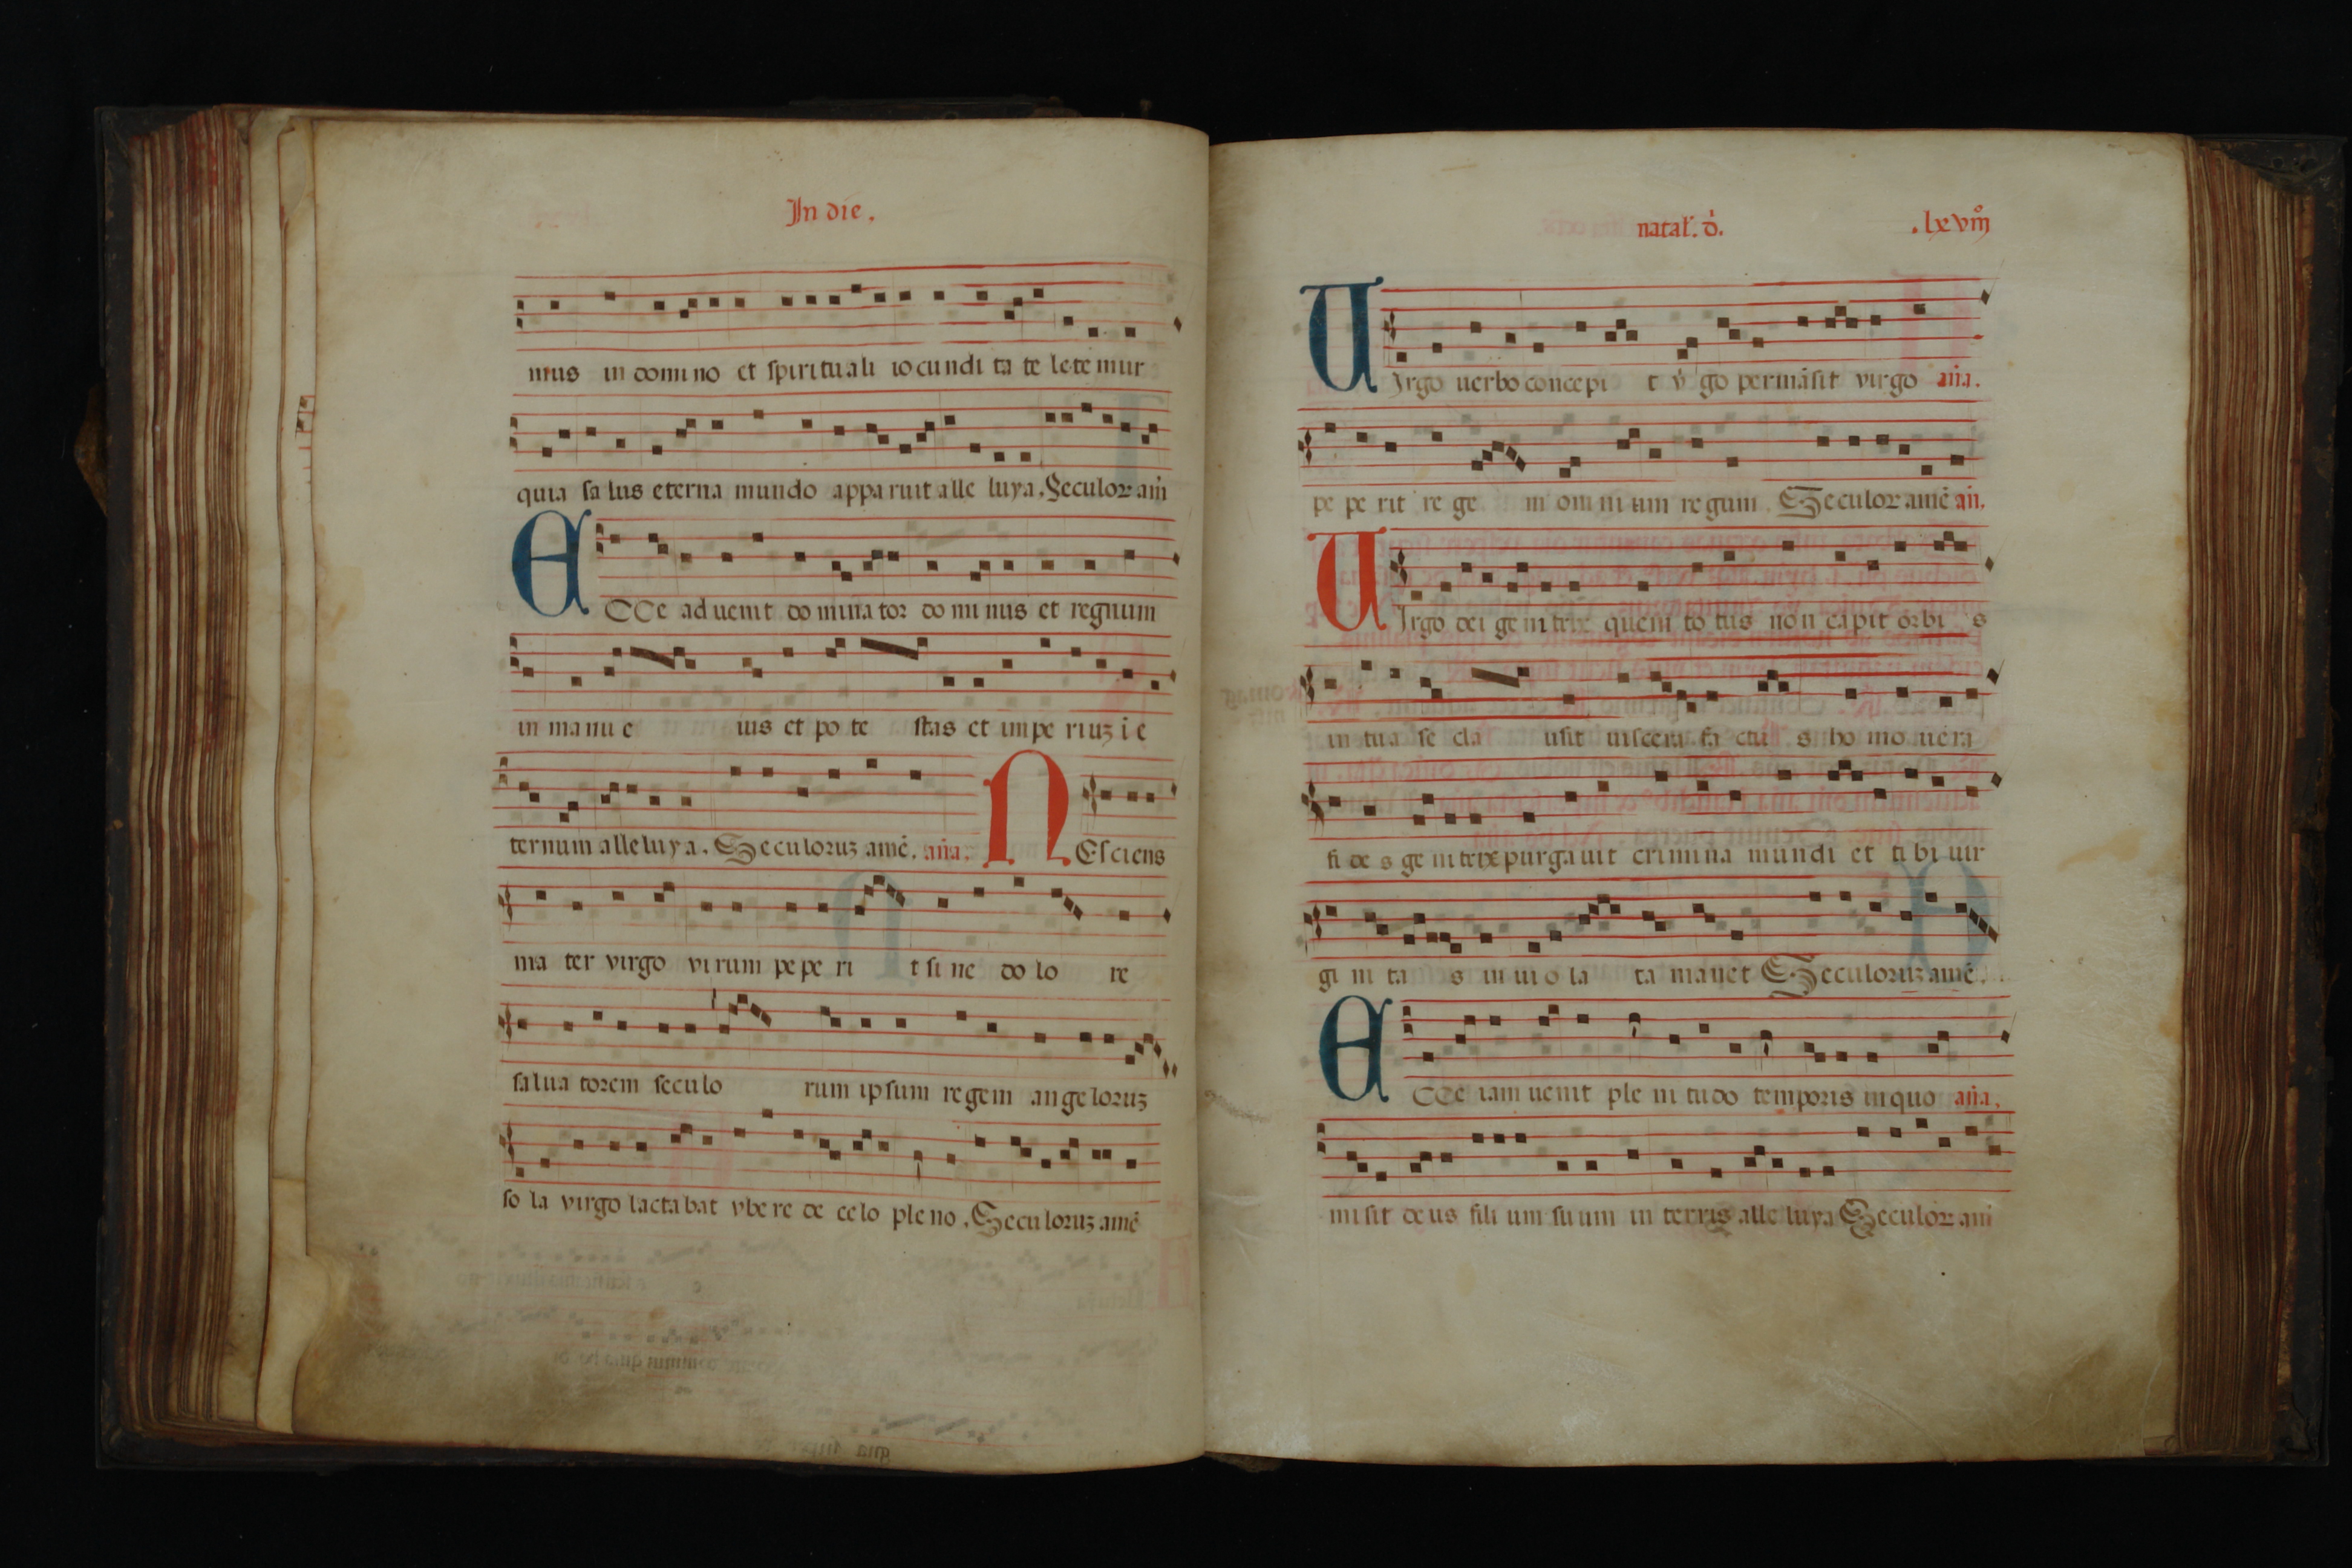 In die.
mus in domino et spirituali iocundi ta te lete mur
quia sa lus eterna mundo apparuit alle luya. Seculoꝝ am̄
ECCe aduenit do mina tor do mi nus et regnum
in manu e ius et po te stas et impe riuʒ i e
ternum alleluya. Seculoruʒ amē. aña. NEsciens
ma ter virgo virum pepe ri t si ne do lo re
salua torem seculo rum ipsum regem angeloruʒ
so la virgo lactabat vbe re de celo pleno. Seculoruʒ amē
natal'. d̄. .lxviiį°
UIrgo uerbo concepi t v̇ go permāsit virgo aña.
pe pe rit re ge m om ni um regum Seculoꝝ amē añ.
UIrgo dei genitrix quem to tus non capit orbi s
in tua se cla usit uiscera fa ctu s ho mo uera
fi de s genitrix purgauit crimina mundi et tibi uir
gi ni ta s in ui o la ta manet Seculoruʒ amē.
ECCe iam uenit ple ni tudo temporis in quo aña.
misit deus fili um suum in terris alle luya Seculoꝝ am